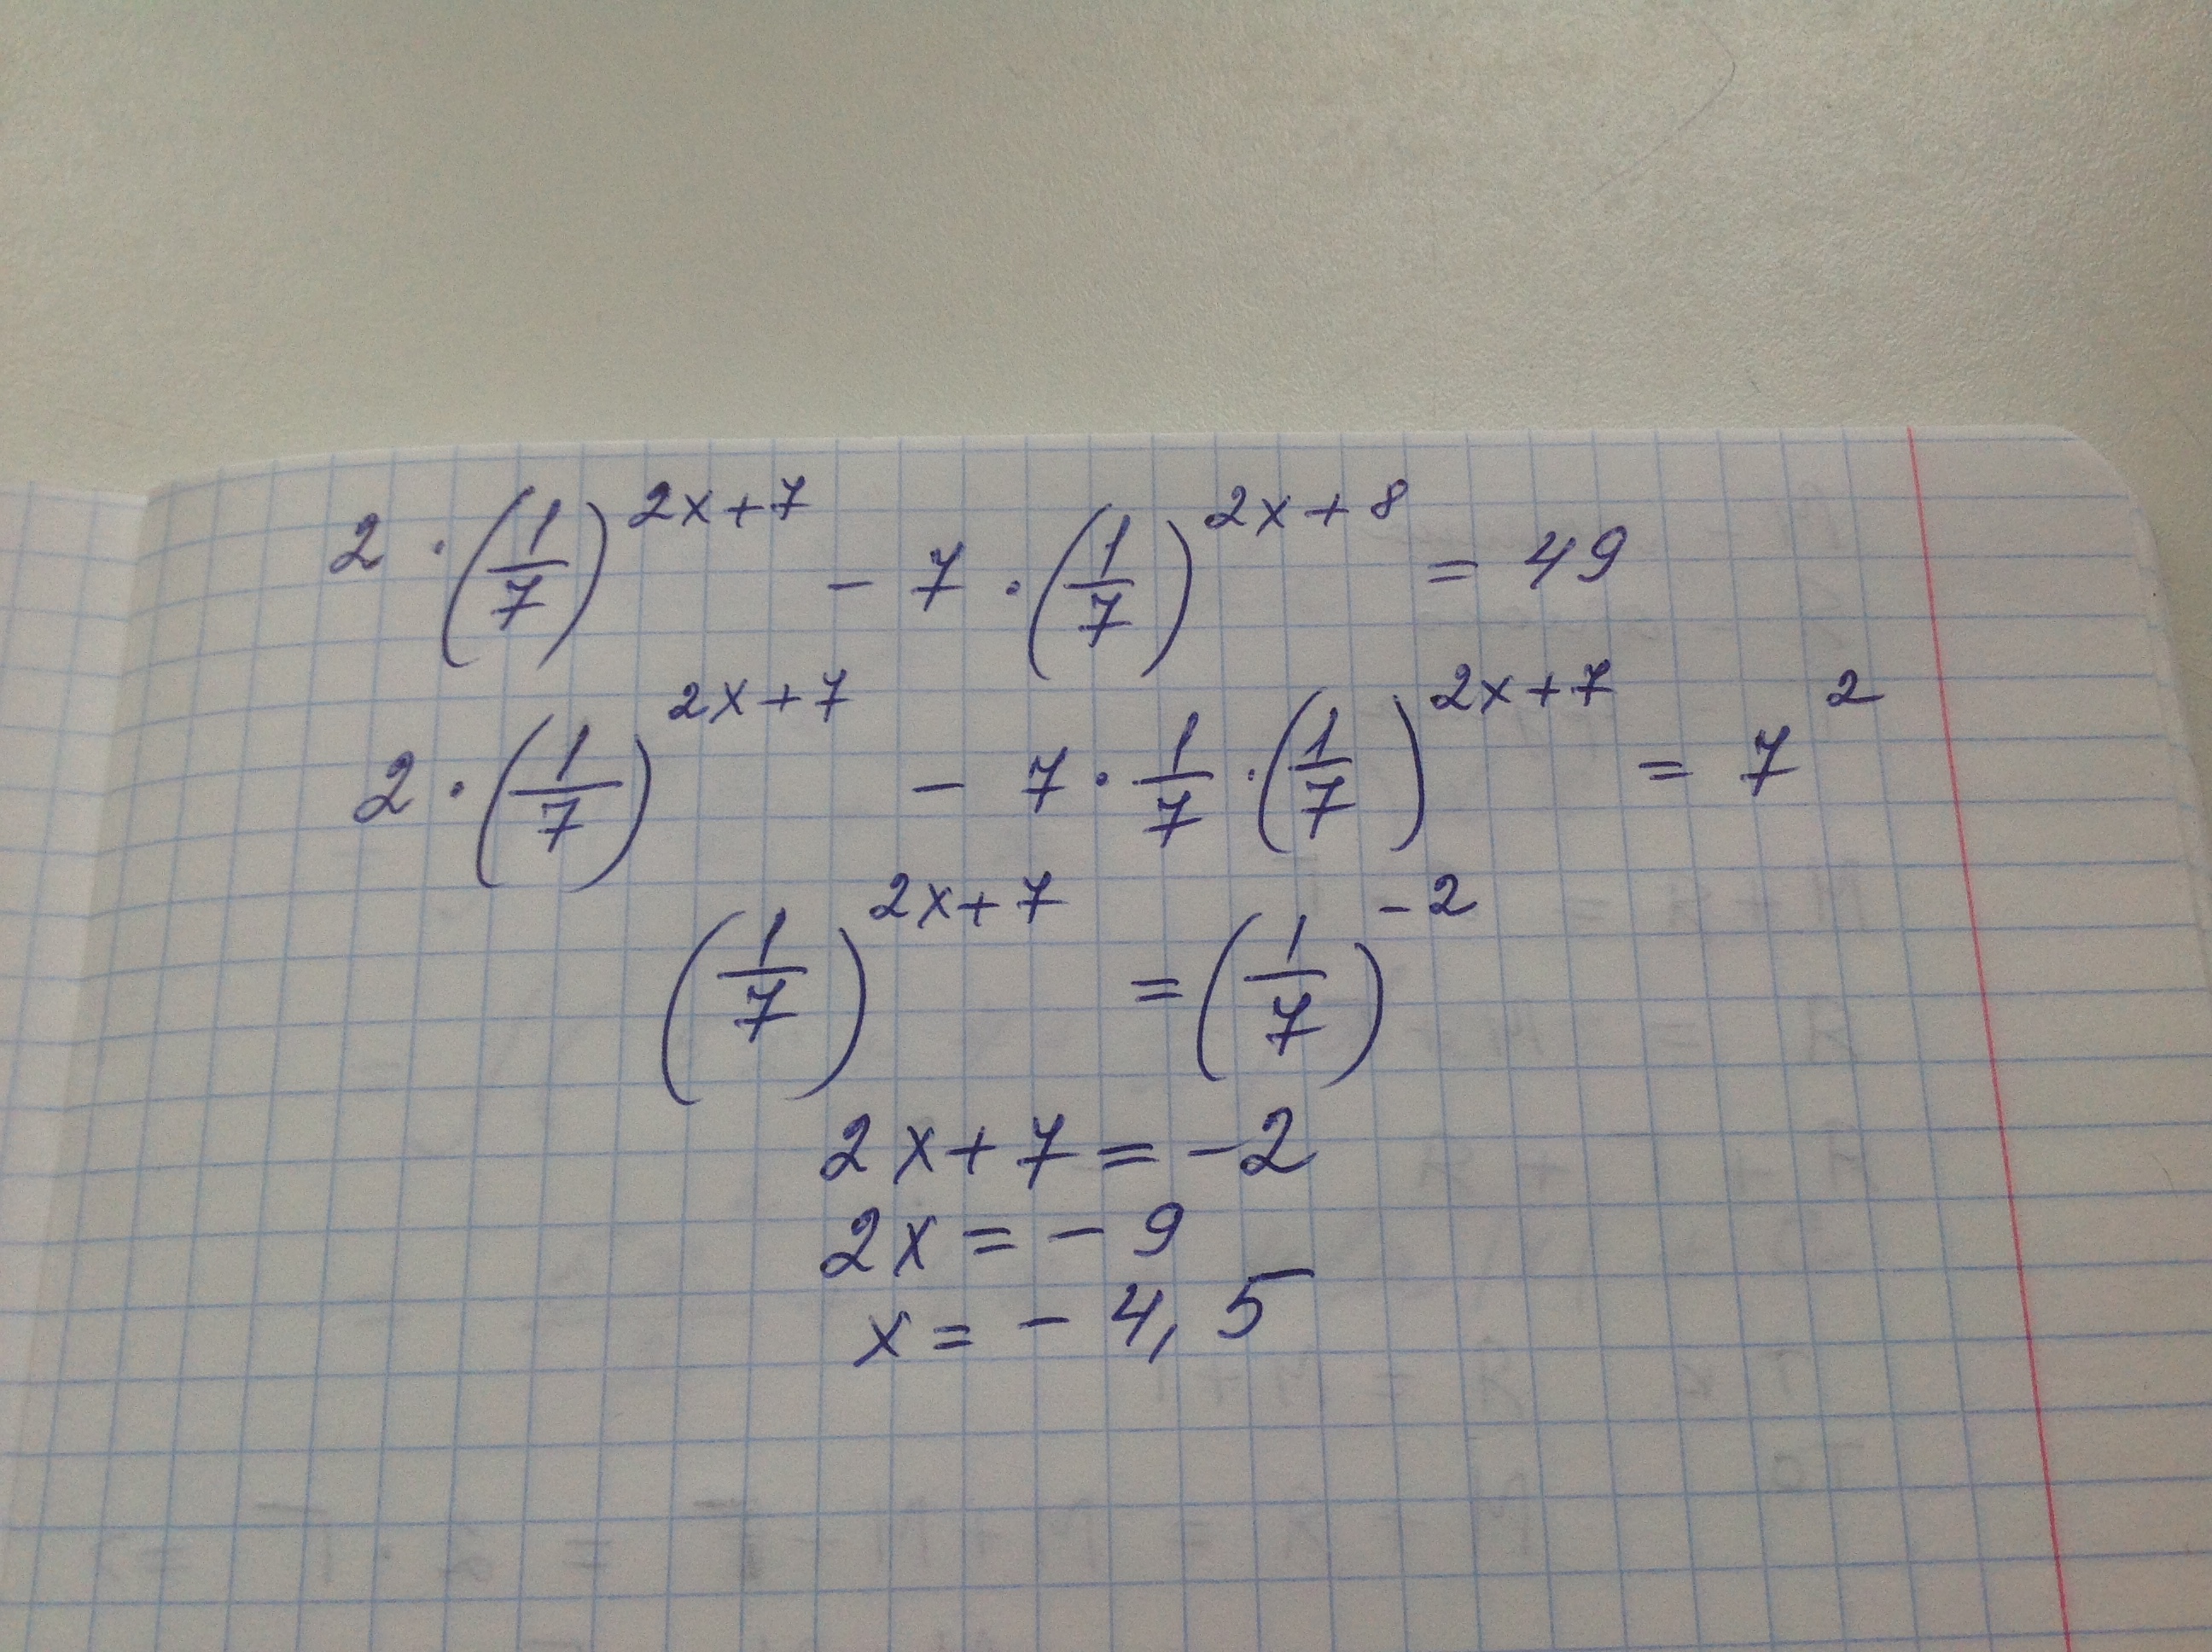 2 · (1/7)^(2x+7) - 7 · (1/7)^(2x+8) = 49
2 · (1/7)^(2x+7) - 7 · 1/7 · (1/7)^(2x+7) = 7^2
(1/7)^(2x+7) = (1/7)^(-2)
2x+7 = -2
2x = -9
x = -4,5